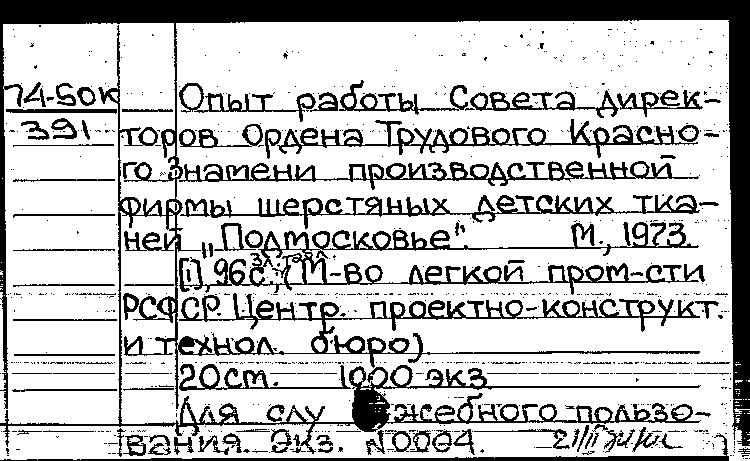 74-50к Опыт работы Совета дирек-
391 торов Ордена Трудового Красно-
го Знамени производственной
фирмы шерстяных детских тка-
ней „Подмосковье". М., 1973.
[1], 96 с.; (М-во легкой пром-сти
РСФСР. Центр. проектно-конструкт.
и технол. бюро)
20 см. 1000 экз.
Для слу жебного пользо-
вания. Экз. N 0004.